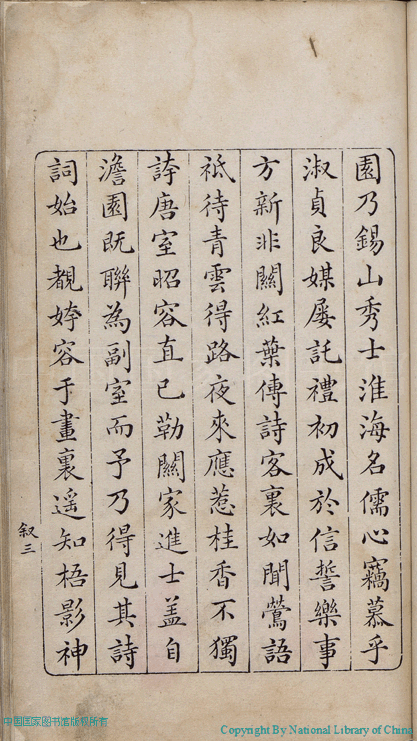 園乃錫山秀士淮海名儒心竊慕乎
淑貞良媒屡託禮初成於信誓樂事
方新非關紅葉傳詩客裏如聞鶯語
祇待青雲得路夜來應惹桂香不獨
誇唐室昭容直已勒關家進士盖自
澹園既聯為副室而予乃得見其詩
詞始也覩姱容于畫裏遥知梧影神
叙三
中国国家图书馆版权所有
Copyright By National Library of China